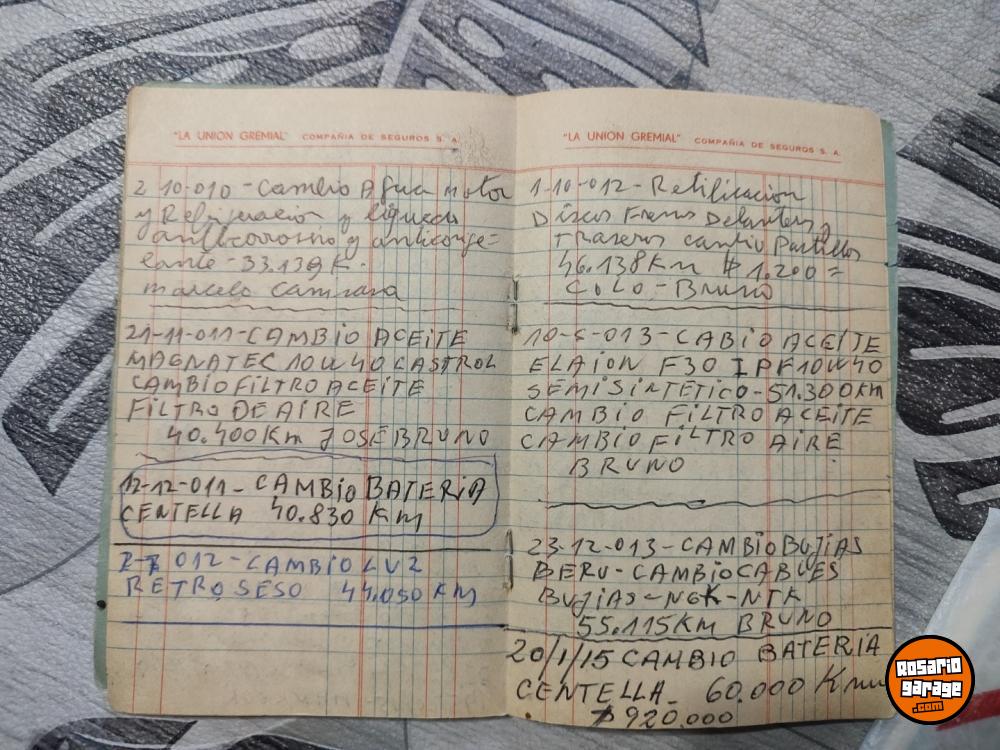 "LA UNION GREMIAL" COMPAÑIA DE SEGUROS S. A.
2 10-010-Cambio Agua motor
y Refrijeracion y liquido
anticorrosivo y anticonje=
lante-33.139K.
marcelo
21-11-011-CAMBIO ACEITE
MAGNATEC 10W40 CASTROL
CAMBIO FILTRO ACEITE
FILTRO DE AIRE
40.400Km JOSE BRUNO
12-12-011-CAMBIO BATERIA
CENTELLA 40.830 KM
012-CAMBIO LUZ
RETROSESO 44.050 KM
"LA UNION GREMIAL" COMPAÑIA DE SEGUROS S. A.
1-10-012-Retificacion
Discos Frenos Delanteros y
Traseros cambio Pastillas
46.138Km $1.200=
COLO-Bruno
013-CABIO ACEITE
ELAION F30 IPF10W40
SEMISINTETICO-51.300KM
CAMBIO FILTRO ACEITE
CAMBIO FILTRO AIRE
BRUNO
23-12-013-CAMBIO BUJIAS
BERU-CAMBIO CABLES
BUJIAS-NGK-NTK
55.115KM BRUNO
20/1/15 CAMBIO BATERIA
CENTELLA_ 60.000 Km
$920.000
Rosario
garage
.com